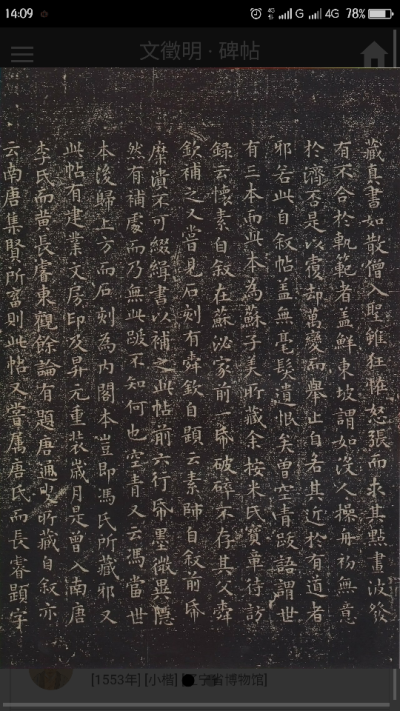 14:09
4G G 4G 78%
文徵明 · 碑帖
藏真書如散僧入聖雖狂怪怒張而求其點畫波發
有不合於軌範者蓋鮮東坡謂如沒人操舟初無意
於濟否是以覆却萬變而舉止自若其近於有道者
邪若此自敘帖蓋無毫髮遺恨矣曾空青跋語謂世
有三本而此本為蘇子美所藏余按米氏寶章待訪
錄云懷素自敘在蘇泌家前一帋破碎不存其父舜
欽補之又嘗見石刻有舜欽自題云素師自敘前帋
糜潰不可綴緝書以補之此帖前六行帋墨微異隱
然有補處而乃無此跋不知何也空青又云馮當世
本後歸上方而石刻為內閣本豈即馮氏所藏邪又
此帖有建業文房印及昇元重裝歲月是曾入南唐
李氏而黃長睿東觀餘論有題唐通叟所藏自敘亦
云南唐集賢所畜則此帖又嘗屬唐氏而長睿題字
[1553年] [小楷] [辽宁省博物馆]